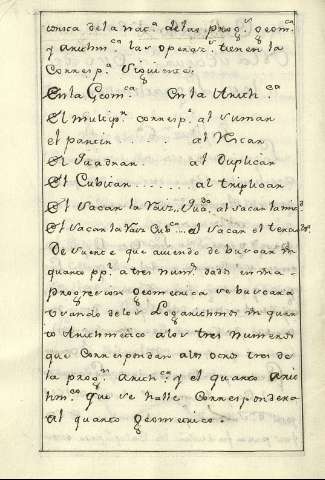 trica de la nac.ª de las prog.s Geom.ca
y Arithm.ca las operac.s tienen la
corresp.ª siguiente.
En la Geom.ca En la Arith.ca
El multip.r corresp.e al sumar
el partir ......... al restar
El Quadrar ....... al Duplicar
El Cubicar ...... al triplicar
El sacar la Raiz Qua.da al sacar la mi.d
El sacar la Raiz Cub.ca al sacar el terc.o
De suerte que aviendo de buscar un
quarto pp.l a tres num.s dados en una
progresion Geometrica se buscara
usando de los Logarithmos un quar
to Arithmetico a los tres numeros
que correspondan a los otros tres de
la prog.n Arith.ca y el quarto Arit
hm.co que se halle correspondera
al quarto Geometrico.